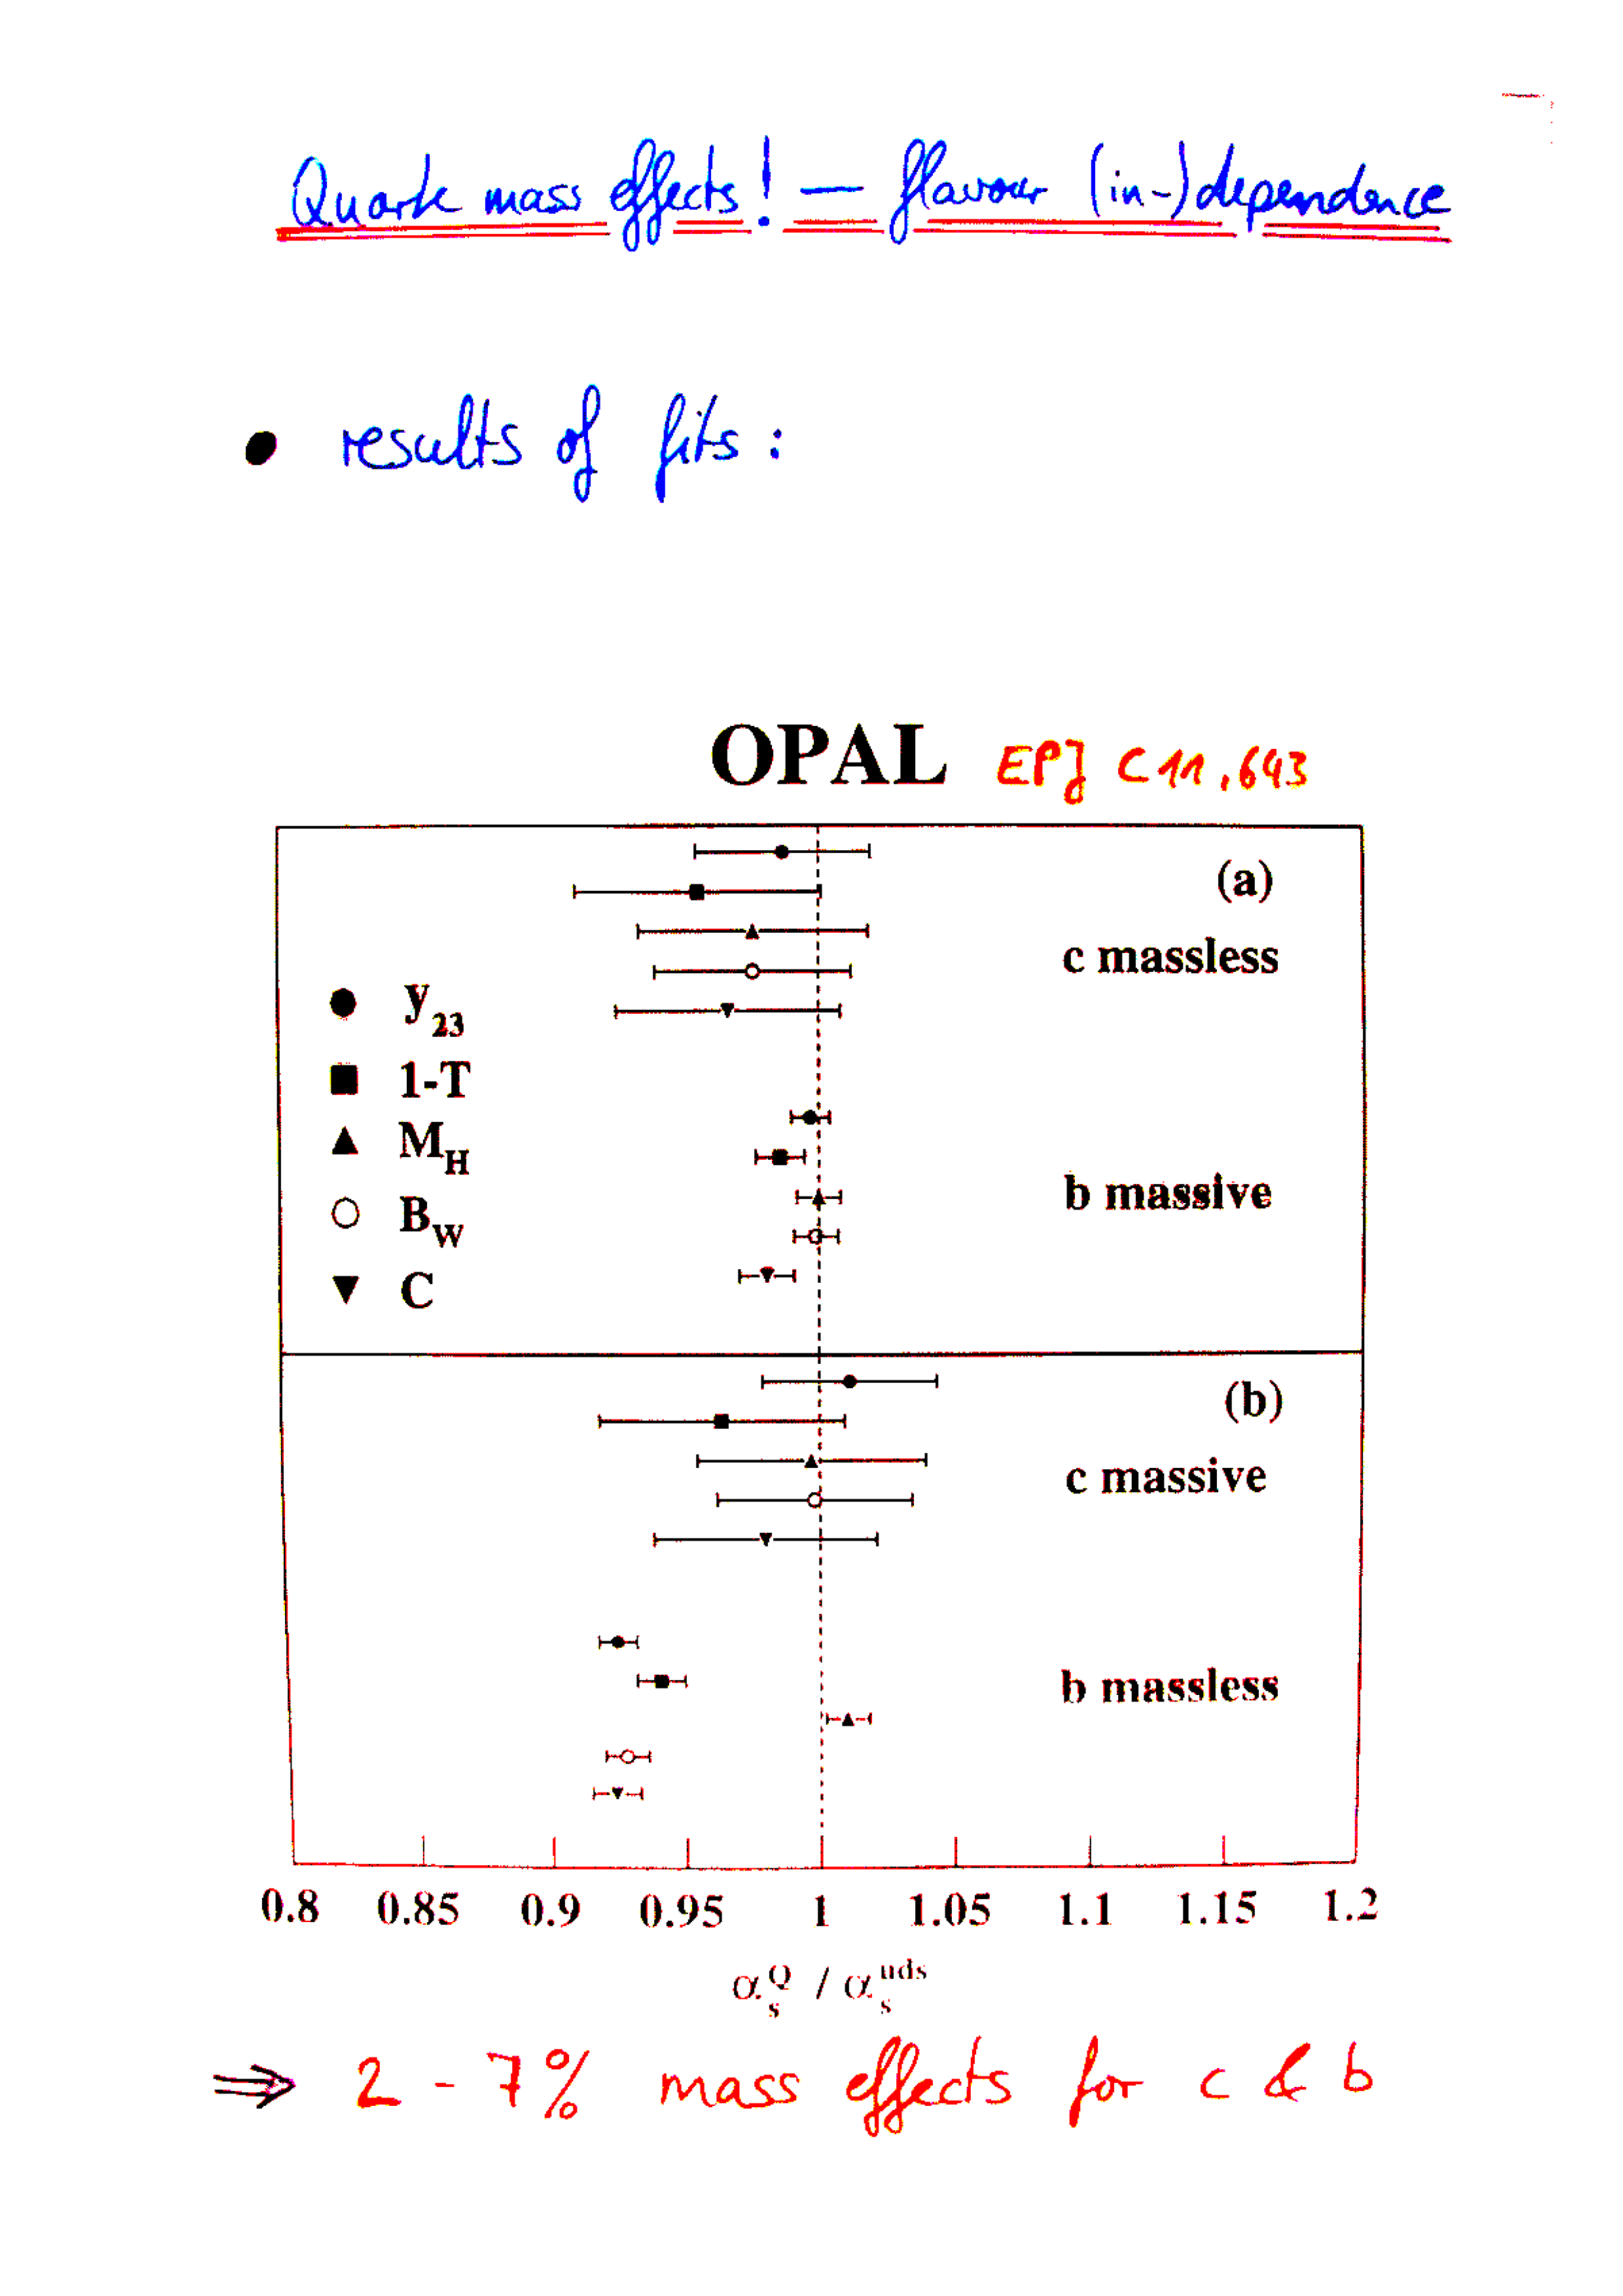 Quark mass effects! — flavour (in-)dependence
• results of fits :
OPAL EPJ C11, 643
(a)
c massless
y23
1-T
MH
BW
C
b massive
(b)
c massive
b massless
0.8 0.85 0.9 0.95 1 1.05 1.1 1.15 1.2
αsQ / αsuds
⇒ 2 - 7% mass effects for c & b